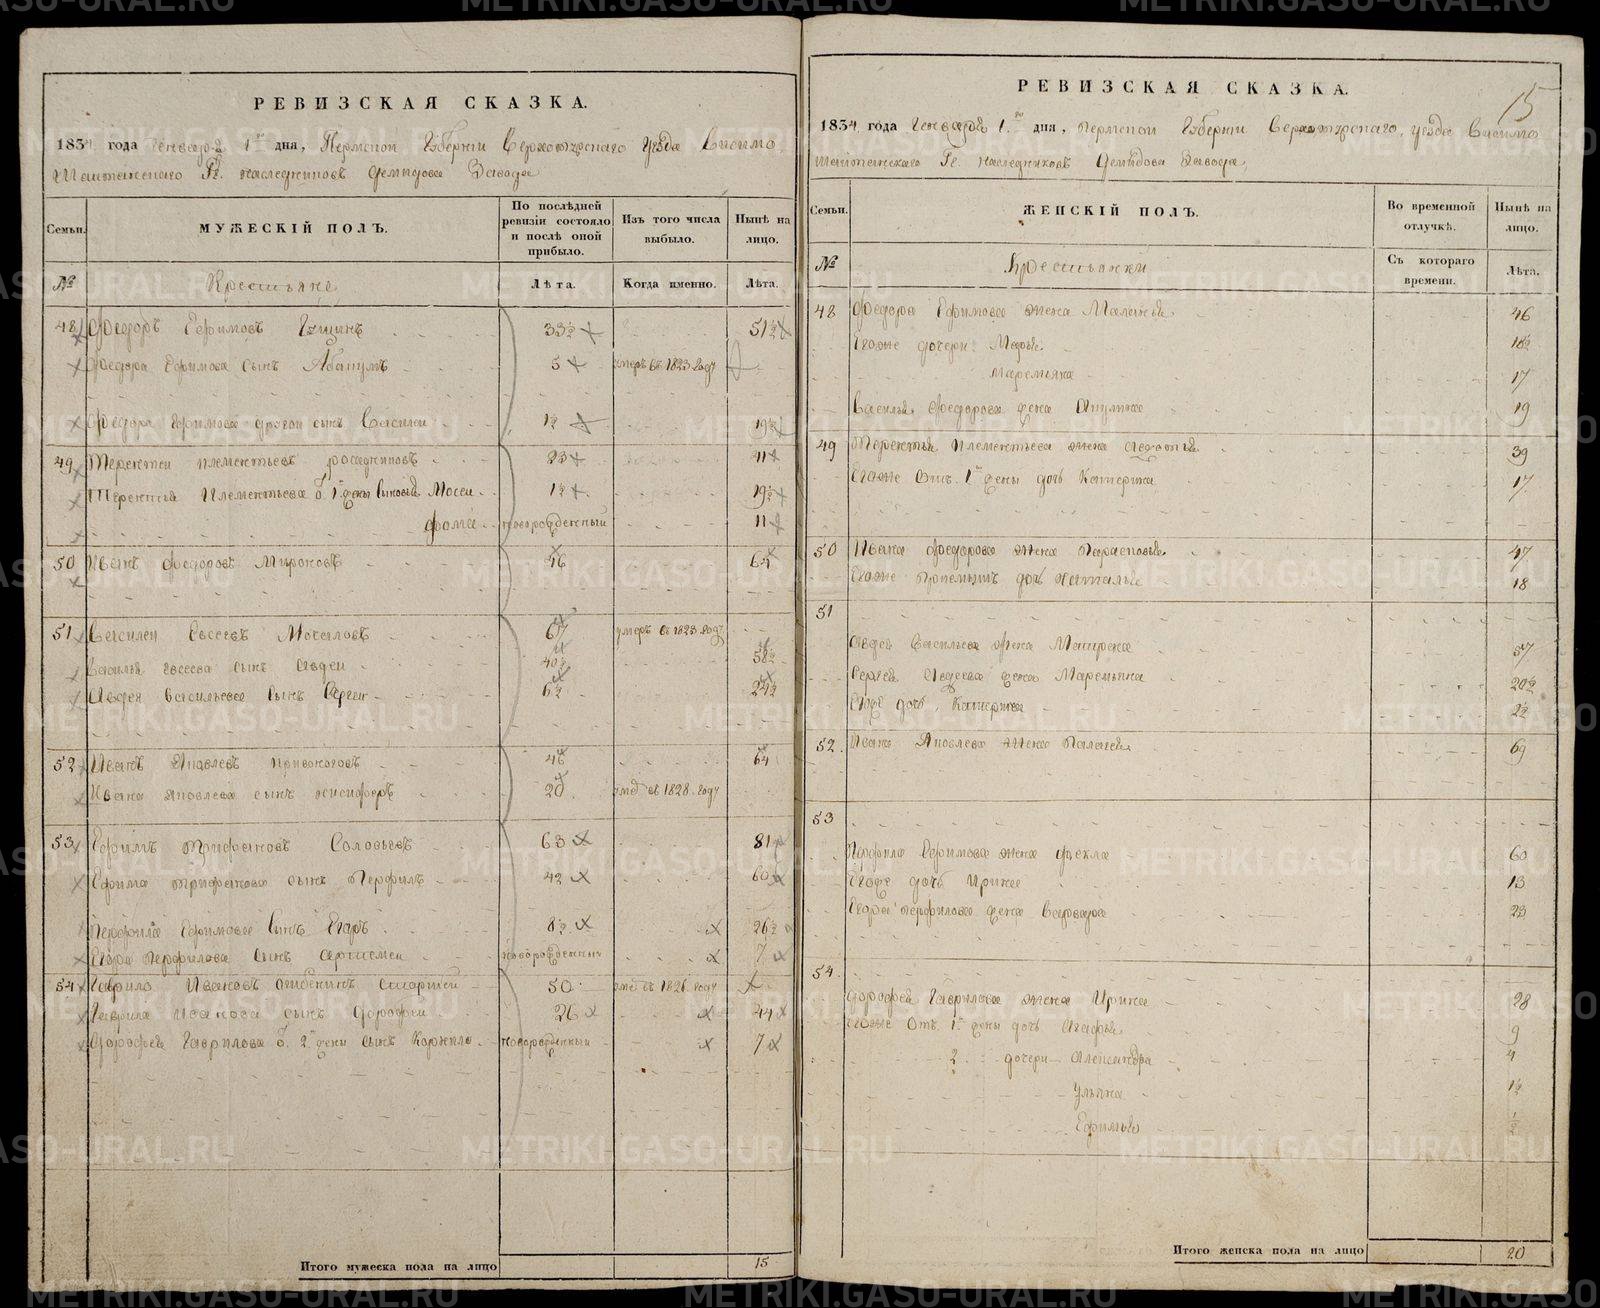 РЕВИЗСКАЯ СКАЗКА.
1834 года Генваря 1го дня, Пермской Губернии Верхотурскаго Уезда Висимо
Шайтанскаго Гг. наследниковъ Демидова Завода
Семьи. МУЖЕСКІЙ ПОЛЪ. По послѣдней ревизіи состояло и послѣ оной прибыло. Изъ того числа выбыло. Нынѣ на лицо.
№ Крестьяне Лѣта. Когда именно. Лѣта.
48 Федоръ Ефимовъ 33½ 51½
Федора Ефимова сынъ Абакумъ 5 умеръ въ 1823 году
Федора Ефимова другой сынъ Василей 1½ 19½
49 Терентей Клементьевъ 23 41
Терентья Клементьева о. 1й жены сыновья Мосей 1½ 19½
Фома новорожденный 11
50 Иванъ Федоровъ Мироновъ 46 64
51 Василей Евсеевъ Мочаловъ 67 умеръ въ 1823 году
Василья Евсеева сынъ Авдей 40½ 58½
Авдея Васильева сынъ Сергей 6½ 24½
52 Иванъ Яковлевъ Кривоноговъ 46 64
Ивана Яковлева сынъ Никифоръ 20 уме. въ 1828 году
53 Ефимъ Трифановъ Соловьевъ 63 81
Ефима Трифанова сынъ Перфилъ 42 60
Перфила Ефимова сынъ Егаръ 8½ 26½
Егора Перфилова сынъ Артемей новорожденный 7
54 Гаврило Ивановъ старшей 50 уме. въ 1826 году
Гаврила Иванова сынъ Дорофей 26 44
Дорофея Гаврилова о. 2й жены сынъ Корнило новорожденный 7
Итого мужеска пола на лицо 15
15
РЕВИЗСКАЯ СКАЗКА.
1834 года Генваря 1го дня, Пермской Губернии Верхотурскаго уезда Висимо
Шайтанскаго Гг. наследниковъ Демидова Завода
Семьи. ЖЕНСКІЙ ПОЛЪ. Во временной отлучкѣ. Нынѣ на лицо.
№ Крестьянки Съ котораго времени. Лѣта.
48 Федора Ефимова жена Маланья 46
Егоже дочери: Марья 18½
Маремьяна 17
Василья Федорова жена Акулина 19
49 Терентья Клементьева жена Авдотья 39
Егоже отъ 1й жены дочь Катерина 17
50 Ивана Федорова жена Парасковья 47
Егоже приемышъ дочь Наталья 18
51
Авдея Васильева жена Матрена 57
Сергея Авдеева жена Маремьяна 20½
Егоже дочь Катерина 2½
52 Ивана Яковлева жена Палагея 69
53
Перфила Ефимова жена Фекла 60
Егоже дочь Ирина 13
Егора Перфилова жена Варвара 23
54
Дорофея Гаврилова жена Ирина 28
Егоже отъ 1й жены дочь Агафья 9
2. дочери Александра 4
Ульяна 1½
Ефимья ½
Итого женска пола на лицо 20
METRIKI.GASO-URAL.RU